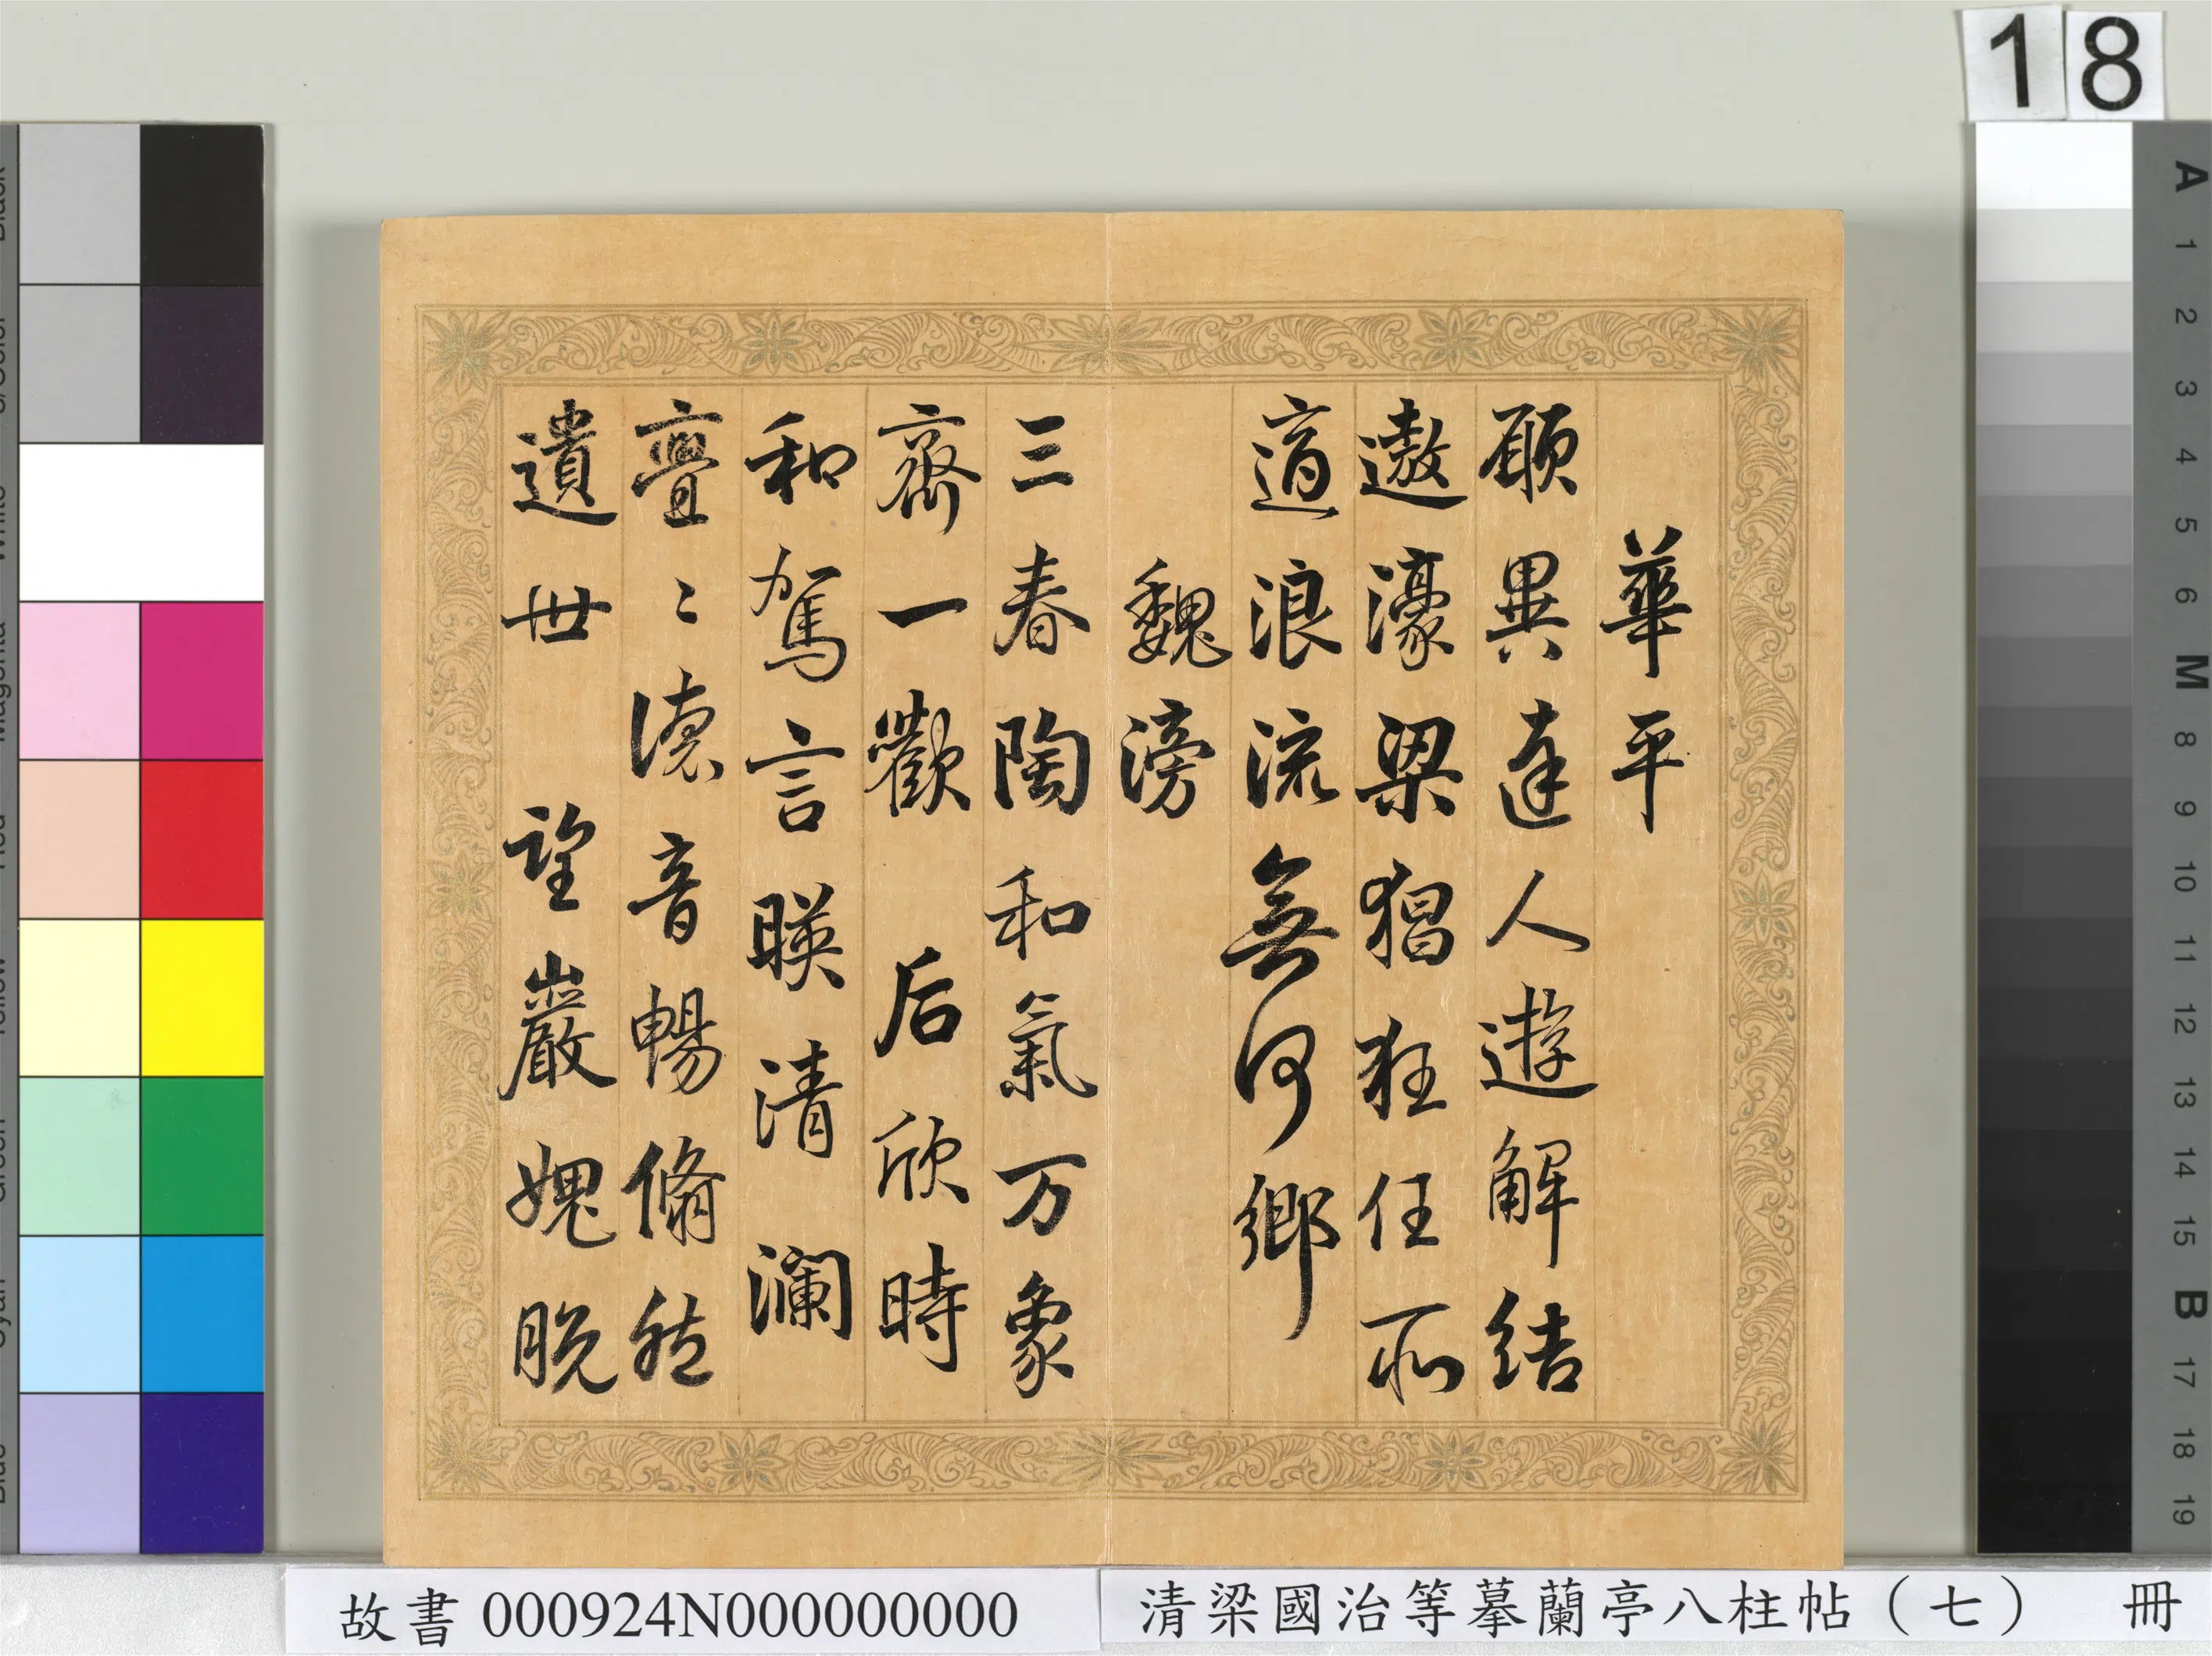 18
華平
願異達人遊解結
遨濠梁猖狂任所
適浪流無何鄉
魏滂
三春陶和氣万象
齊一歡 后欣時
和駕言暎清瀾
亹〻德音暢翛然
遺世 望巖愧脫
A 1 2 3 4 5 6 M 8 9 10 11 12 13 14 15 B 17 18 19
故書 000924N000000000
清梁國治等摹蘭亭八柱帖（七） 冊